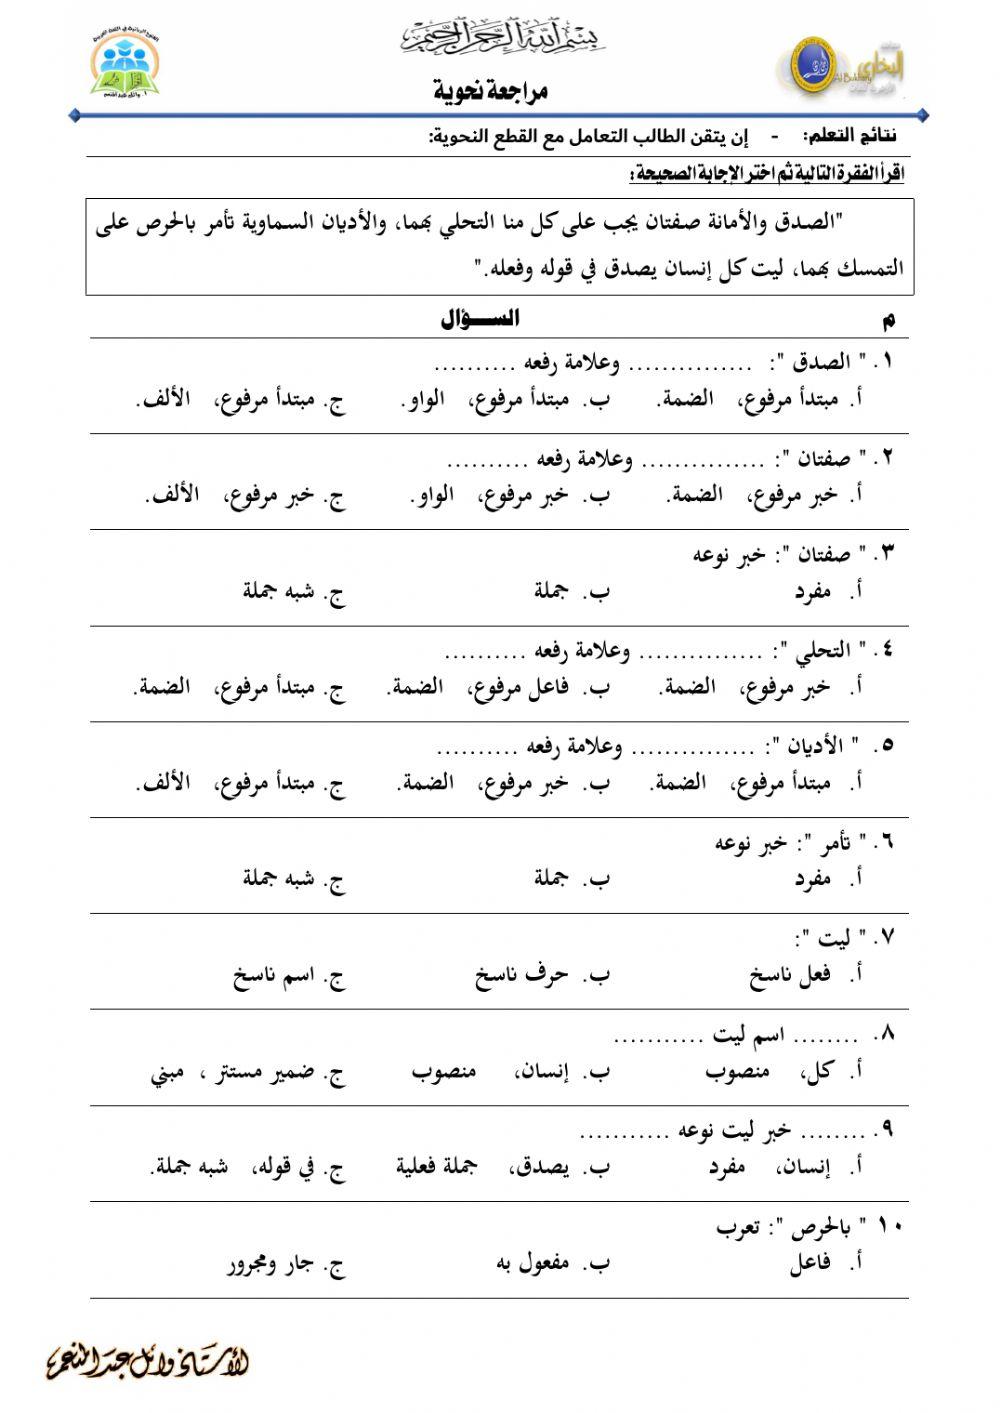 بسم الله الرحمن الرحيم
البخاري
Al Bukhary
مراجعة نحوية
نتائج التعلم: - إن يتقن الطالب التعامل مع القطع النحوية:
اقرأ الفقرة التالية ثم اختر الإجابة الصحيحة:
"الصدق والأمانة صفتان يجب على كل منا التحلي بهما، والأديان السماوية تأمر بالحرص على
التمسك بهما، ليت كل إنسان يصدق في قوله وفعله."
م السـؤال
١. " الصدق ": ............... وعلامة رفعه ..........
أ. مبتدأ مرفوع، الضمة. ب. مبتدأ مرفوع، الواو. ج. مبتدأ مرفوع، الألف.
٢. " صفتان ": ............... وعلامة رفعه ..........
أ. خبر مرفوع، الضمة. ب. خبر مرفوع، الواو. ج. خبر مرفوع، الألف.
٣. " صفتان ": خبر نوعه
أ. مفرد ب. جملة ج. شبه جملة
٤. " التحلي ": ............... وعلامة رفعه ..........
أ. خبر مرفوع، الضمة. ب. فاعل مرفوع، الضمة. ج. مبتدأ مرفوع، الضمة.
٥. " الأديان ": ............... وعلامة رفعه ..........
أ. مبتدأ مرفوع، الضمة. ب. خبر مرفوع، الضمة. ج. مبتدأ مرفوع، الألف.
٦. " تأمر ": خبر نوعه
أ. مفرد ب. جملة ج. شبه جملة
٧. " ليت ":
أ. فعل ناسخ ب. حرف ناسخ ج. اسم ناسخ
٨. ........ اسم ليت ...........
أ. كل، منصوب ب. إنسان، منصوب ج. ضمير مستتر ، مبني
٩. ........ خبر ليت نوعه ...........
أ. إنسان، مفرد ب. يصدق، جملة فعلية ج. في قوله، شبه جملة.
١٠ " بالحرص ": تعرب
أ. فاعل ب. مفعول به ج. جار ومجرور
الأستاذ وائل عبد المنعم